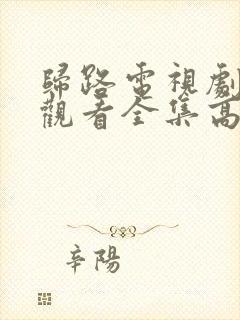 歸路電視劇
觀看全集高
辛陽